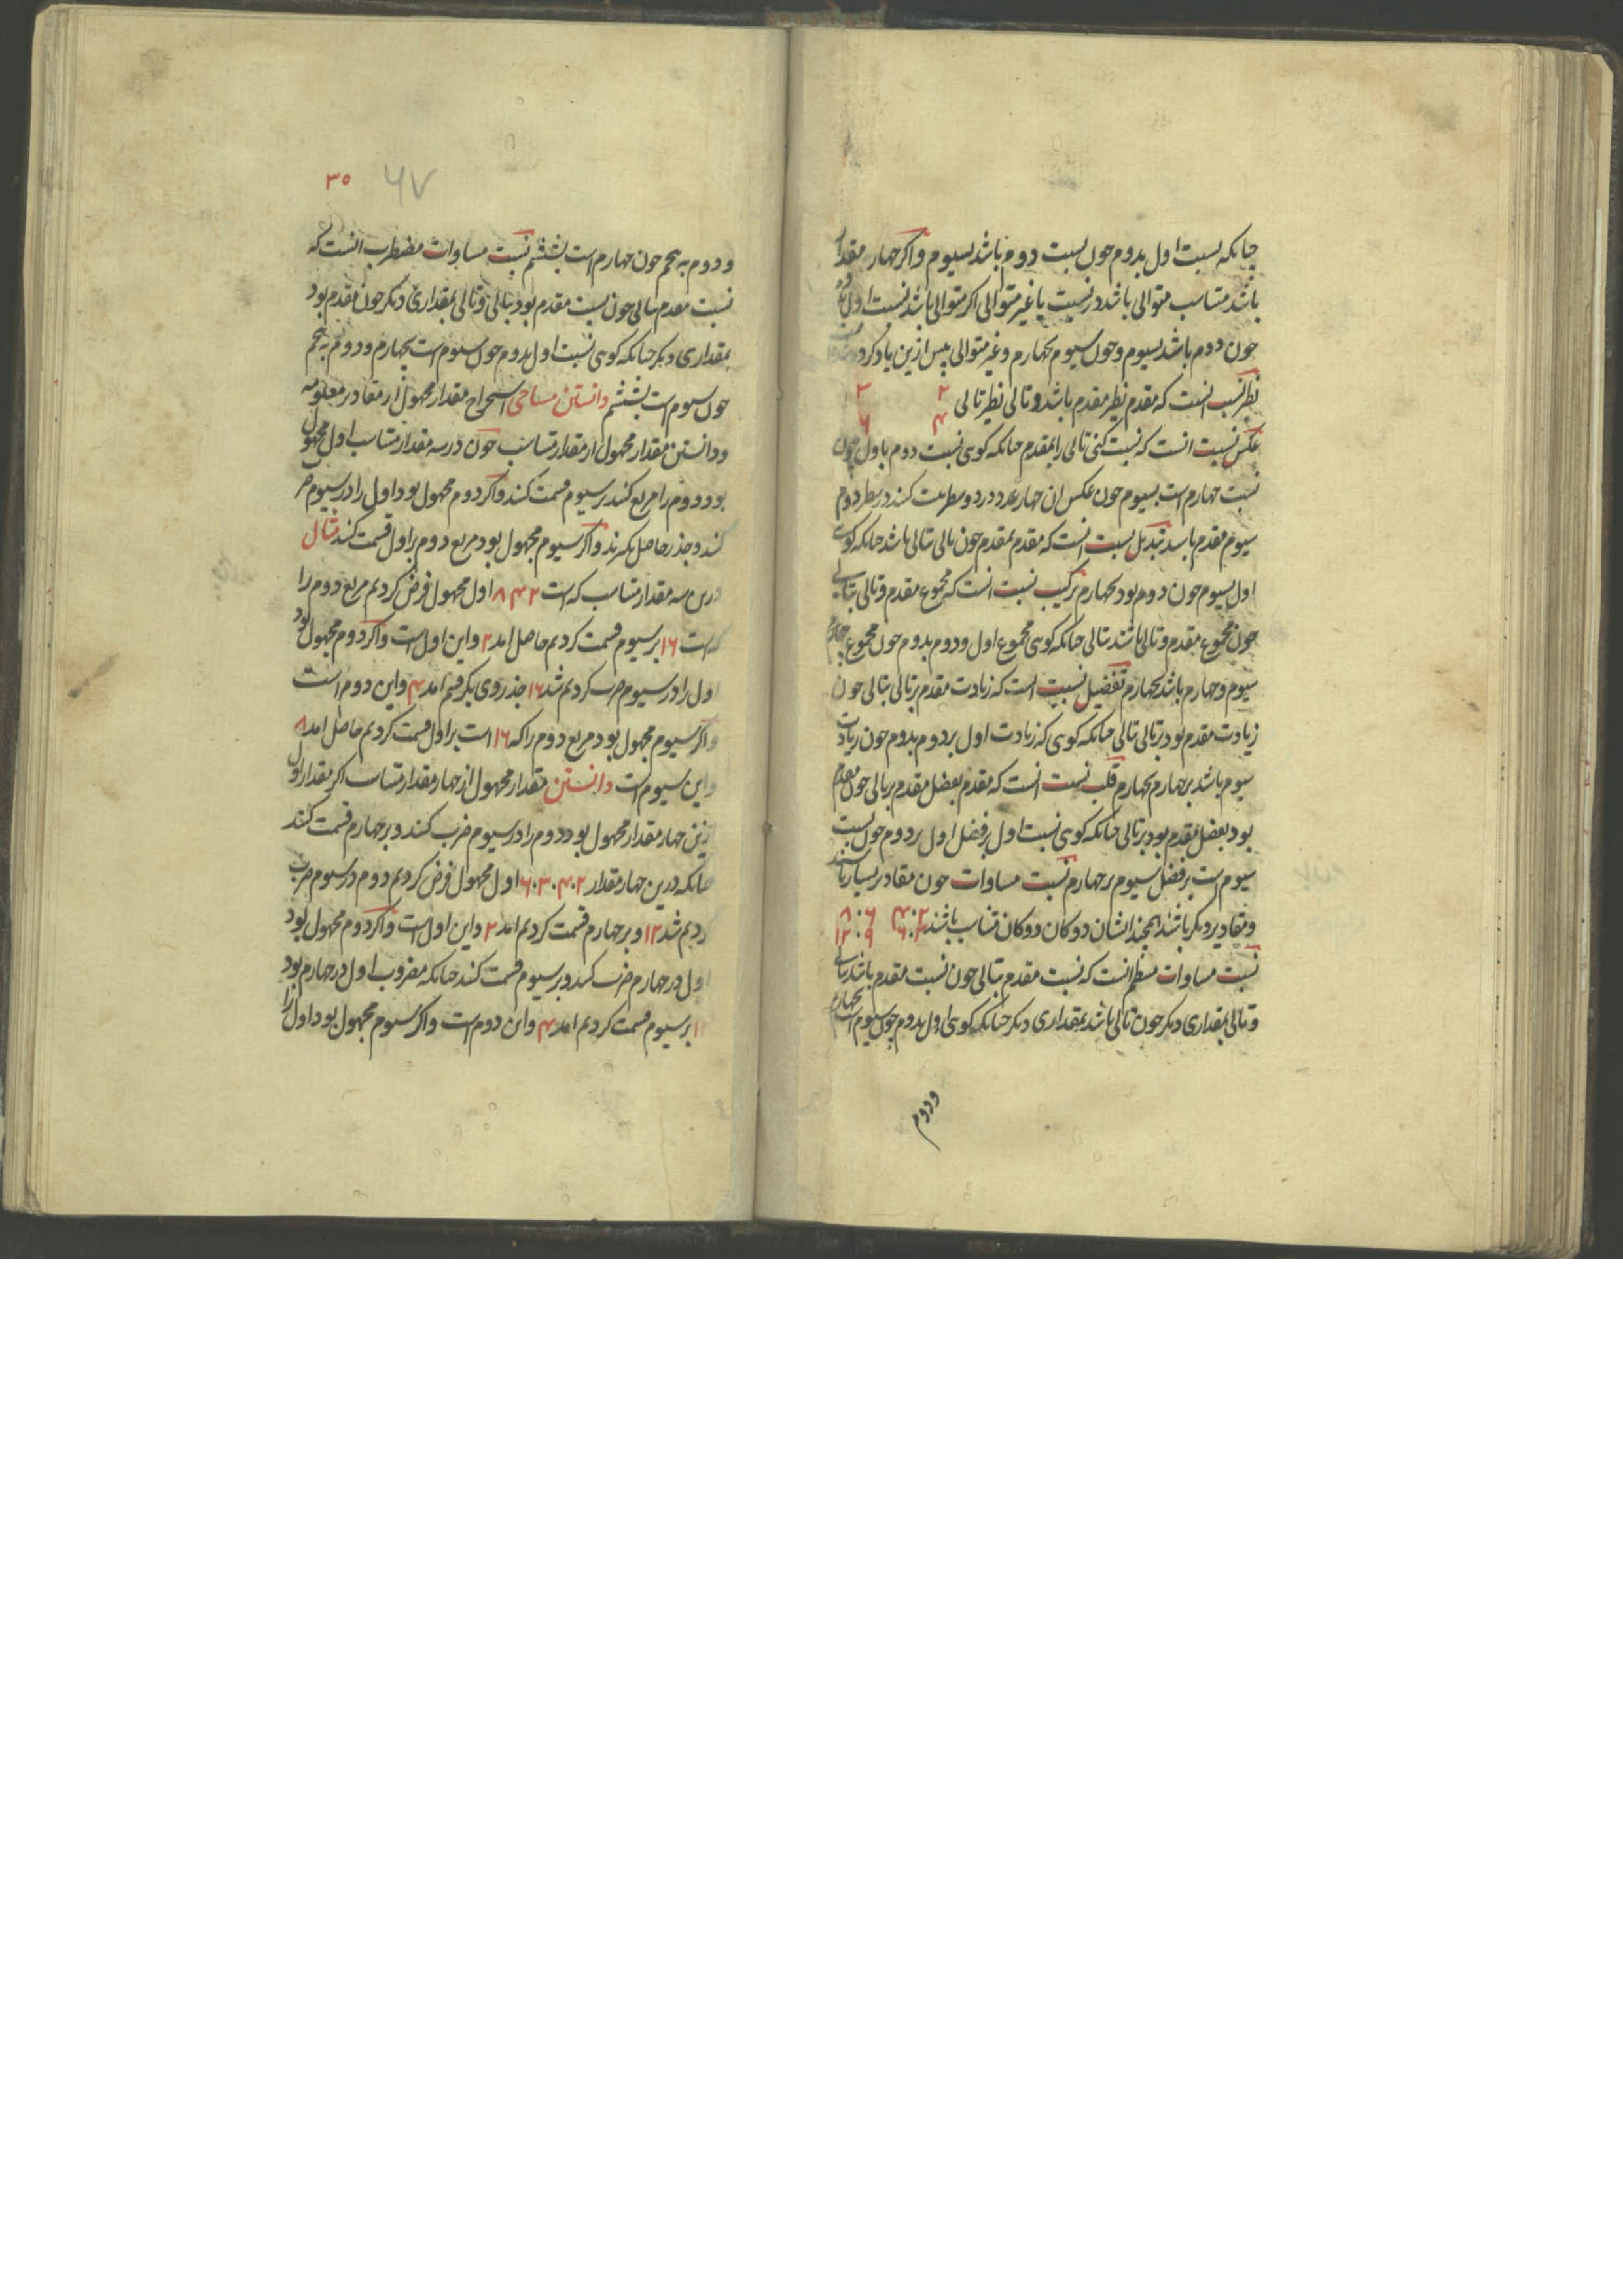 چنانکه نسبت اول بدوم چون نسبت دوم باشد بسیوم واکر چهار مقدار
باشد متناسب متوالی باشد در نسبت یا غیر متوالی اکر متوالی باشد نسبت اول بدوم
چون دوم باشد بسیوم وچون سیوم بچهارم وغیر متوالی پس ازین یاد کرده
نظیر نسبت انست که مقدم نظیر مقدم باشد وتالی نظیر تالی ۲ ۴ ۳ ۶
عکس نسبت انست که نسبت کنی تالی را بمقدم چنانکه کوی نسبت دوم باول چون
نسبت چهارم است بسیوم چون عکس ان چهار عدد در دو سطر ثبت کنند در سطر دوم
سیوم مقدم باشد تبدیل نسبت انست که مقدم بمقدم چون تالی بتالی باشد چنانکه کوی
اول بسیوم چون دوم بود بچهارم ترکیب نسبت انست که مجموع مقدم وتالی بتالی
چون مجموع مقدم وتالی باشد بتالی چنانکه کوی مجموع اول ودوم بدوم چون مجموع
سیوم وچهارم باشد بچهارم تفضیل نسبت انست که زیادت مقدم بر تالی بتالی چون
زیادت مقدم بود بر تالی بتالی چنانکه کوی که زیادت اول بر دوم بدوم چون زیادت
سیوم باشد بر چهارم بچهارم قلب نسبت انست که مقدم بفضل مقدم بر تالی چون مقدم
بود بفضل مقدم بود بر تالی چنانکه کوی نسبت اول بر فضل اول بر دوم چون نسبت
سیوم است بر فضل سیوم بر چهارم نسبت مساوات چون مقادیر بسیار باشند
ومقادیر دیکر باشند بچند ایشان دوکان دوکان متناسب باشند ۲ ۴ ۶ ۸ ۳ ۶ ۹ ۱۲
نسبت مساوات منتظم انست که نسبت مقدم بتالی چون نسبت مقدم باشد بتالی
وتالی بمقداری دیکر چون تالی باشد بمقداری دیکر چنانکه کوی اول بدوم چون سیوم است بچهارم
ودوم
۳۵ ۶۷
ودوم به پنجم چون چهارم است بششم نسبت مساوات مضطرب انست که
نسبت مقدم بتالی چون نسبت مقدم بود بتالی وتالی بمقداری دیکر چون مقدم بود
بمقداری دیکر چنانکه کوی نسبت اول بدوم چون سیوم است بچهارم ودوم به پنجم
چون سیوم است بششم دانستن مساحی استخراج مقدار مجهول از مقادیر معلومه
ودانستن مقدار مجهول از مقدار متناسب چون در سه مقدار متناسب اول مجهول
بود دوم را مربع کنند بر سیوم قسمت کنند واکر دوم مجهول بود اول را در سیوم ضرب
کنند وجذر حاصل بکیرند واکر سیوم مجهول بود مربع دوم بر اول قسمت کنند مثال
درین سه مقدار متناسب که است ۲ ۴ ۸ اول مجهول فرض کردیم مربع دوم را
که است ۱۶ بر سیوم قسمت کردیم حاصل امد ۲ واین اول است واکر دوم مجهول بود
اول را در سیوم ضرب کردیم شد ۱۶ جذر وی بکرفتیم امد ۴ واین دوم است
واکر سیوم مجهول بود مربع دوم را که ۱۶ است بر اول قسمت کردیم حاصل امد ۸
واین سیوم است دانستن مقدار مجهول از چهار مقدار متناسب اکر مقدار اول
ازین چهار مقدار مجهول بود دوم را در سیوم ضرب کنند وبر چهارم قسمت کنند
چنانکه درین چهار مقدار ۲۰۴۰۳۰۶ اول مجهول فرض کردیم دوم در سیوم ضرب
کردیم شد ۱۲ وبر چهارم قسمت کردیم امد ۲ واین اول است واکر دوم مجهول بود
اول در چهارم ضرب کنند وبر سیوم قسمت کنند چنانکه مضروب اول در چهارم بود
۱۲ بر سیوم قسمت کردیم امد ۴ واین دوم است واکر سیوم مجهول بود اول را